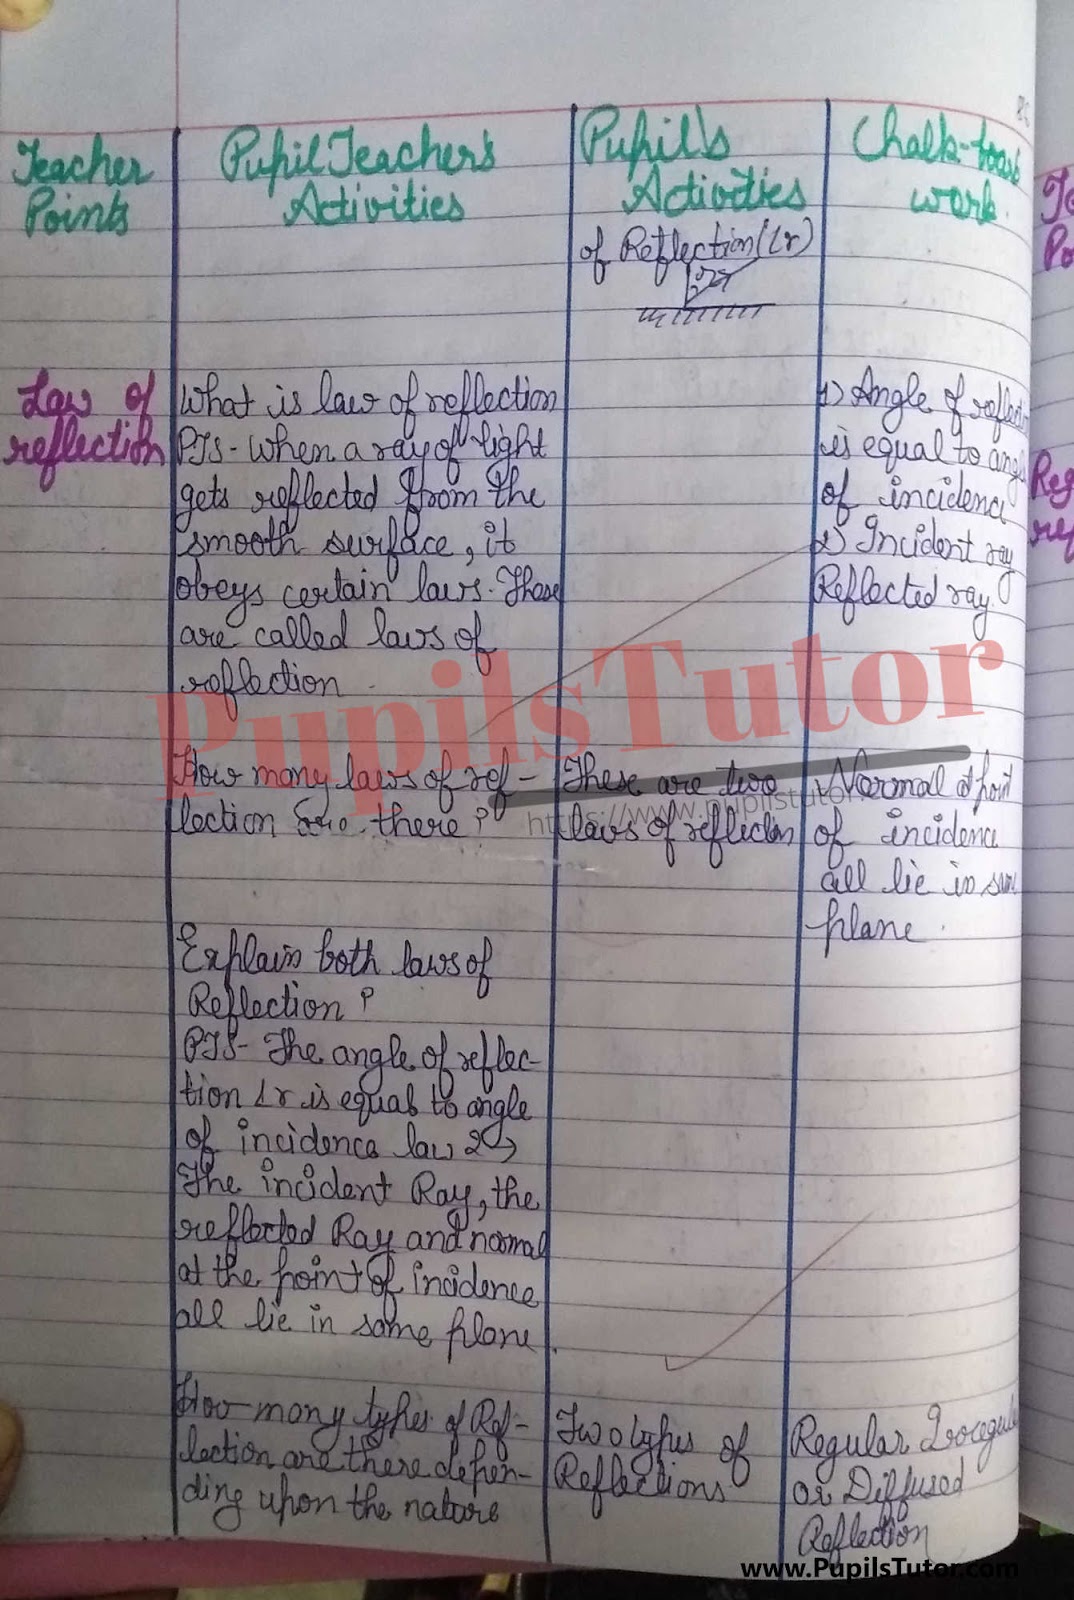 Teacher
Points
Pupil Teacher's
Activities
Pupil's
Activities
Chalk-board
work.
of Reflection (∠r)
Law of
reflection
What is law of reflection
PTS- When a ray of light
gets reflected from the
smooth surface, it
obeys certain laws. These
are called laws of
reflection.
1) Angle of reflection
is equal to angle
of incidence
2) Incident ray
Reflected ray.
PupilsTutor
How many laws of ref-
lection are there?
These are two
laws of reflection
https://www.pupilstutor.
Normal at point
of incidence
all lie in same
plane.
Explain both laws of
Reflection?
PTS- The angle of reflec-
tion ∠r is equal to angle
of incidence law 2→
The incident Ray, the
reflected Ray and normal
at the point of incidence
all lie in same plane.
How many types of Ref-
lection are there depen-
ding upon the nature
Two types of
Reflections
Regular Irregular
or Diffused
Reflection
Reg
ref
www.PupilsTutor.com